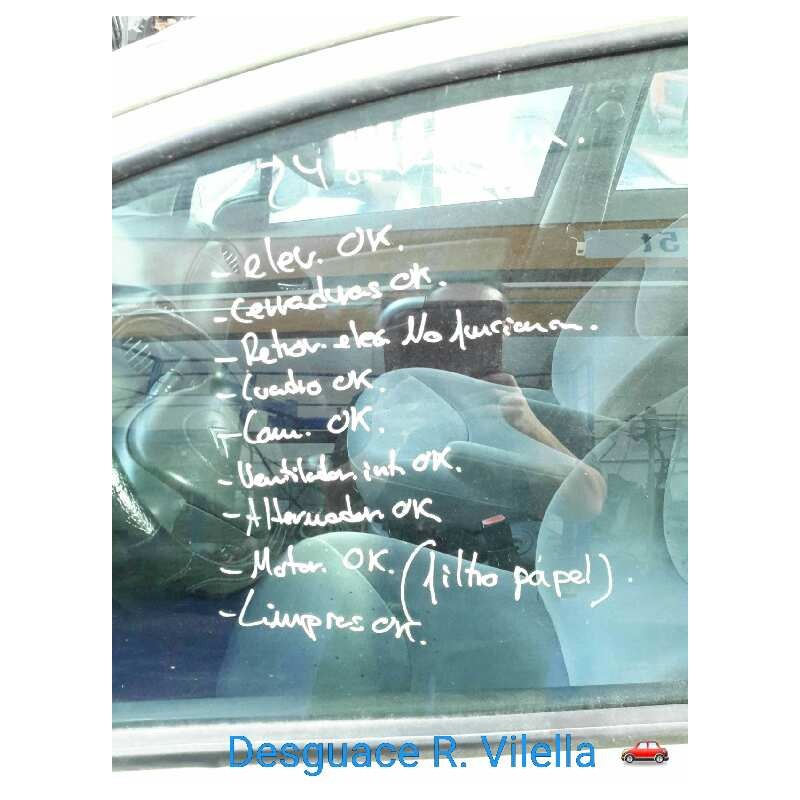 - elev. OK.
- Cerraduras OK.
- Retrov. elec. No funcionan.
- Cuadro OK.
- Conm. OK.
- Ventilador int. OK.
- Alternador OK
- Motor OK. (filtro papel).
- Limpias OK.
Desguace R. Vilella